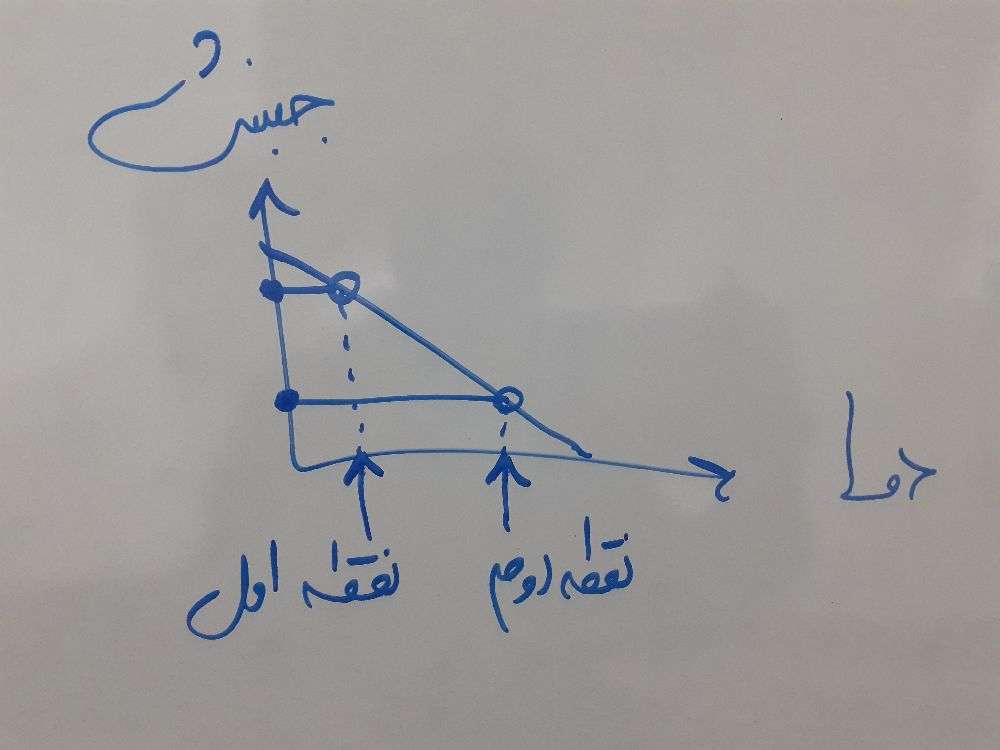 جنبش
دما
نقطه دوم
نقطه اول